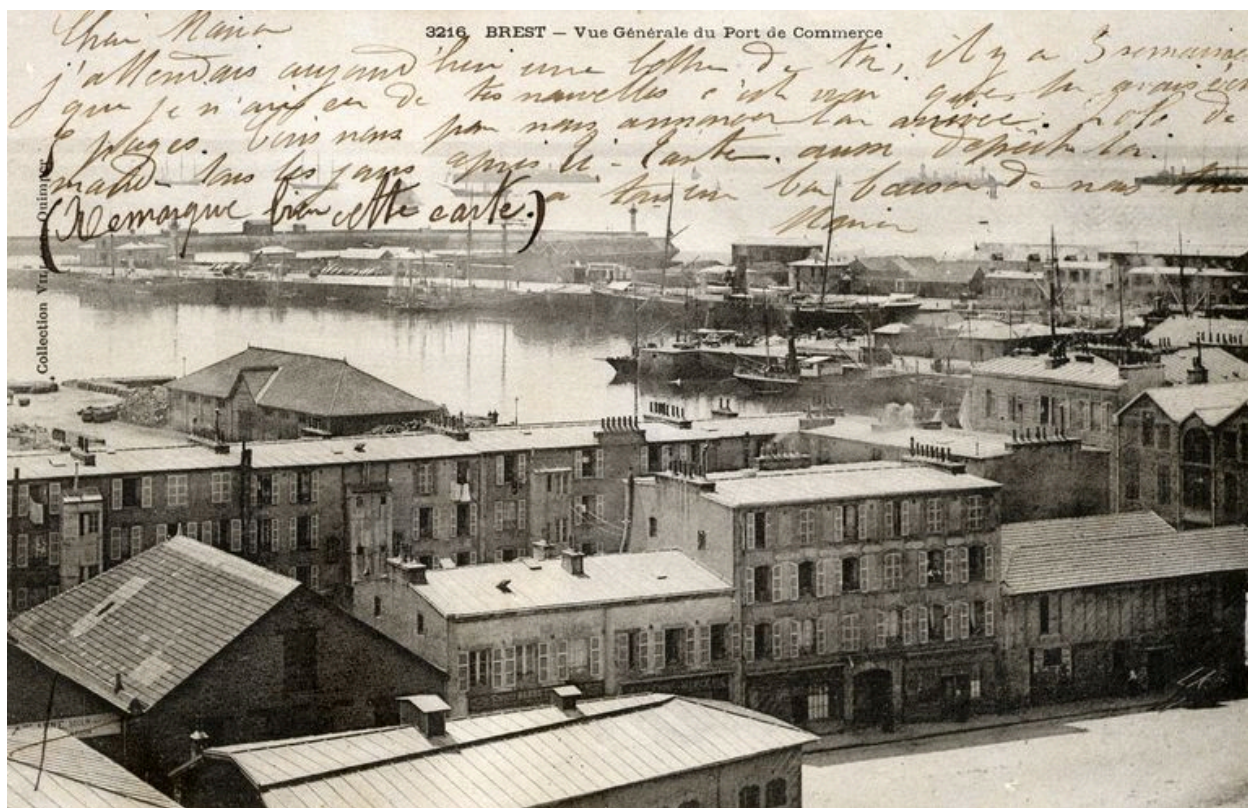 3216 BREST — Vue Générale du Port de Commerce
Cher Maria
j'attendais aujourd'hui une lettre de toi, il y a 3 semaines
que je n'ai eu de tes nouvelles c'est vrai que tu avais
pages. nous annoncer ton arrivée.
tous les jours après ta carte. aussi dépêche toi.
un bon baiser de nous tous
(Remarque bien cette carte.)
Maria
Collection Quimper